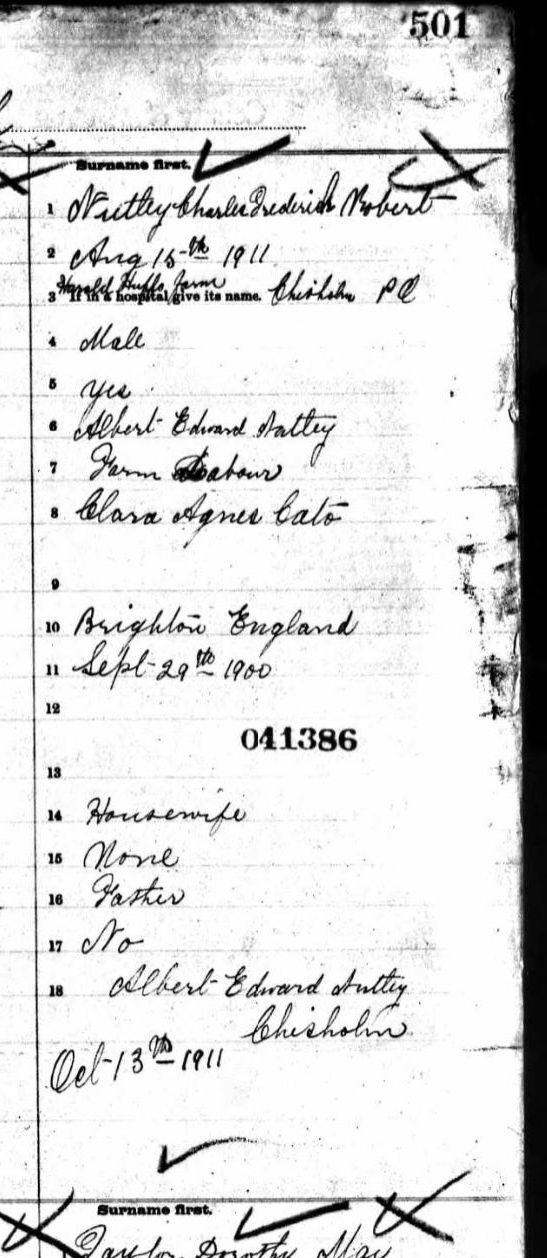 501
Surname first.
1 Nutley Charles Frederick Robert
2 Aug 15th 1911
Harold Huffs farm
3 If in a hospital give its name. Chisholm PO
4 Male
5 Yes
6 Albert Edward Nutley
7 Farm Labour
8 Clara Agnes Cato
9
10 Brighton England
11 Sept 29th 1900
12
041386
13
14 Housewife
15 None
16 Father
17 No
18 Albert Edward Nutley
Chisholm
Oct 13th 1911
Surname first.
Taylor Dorothy May